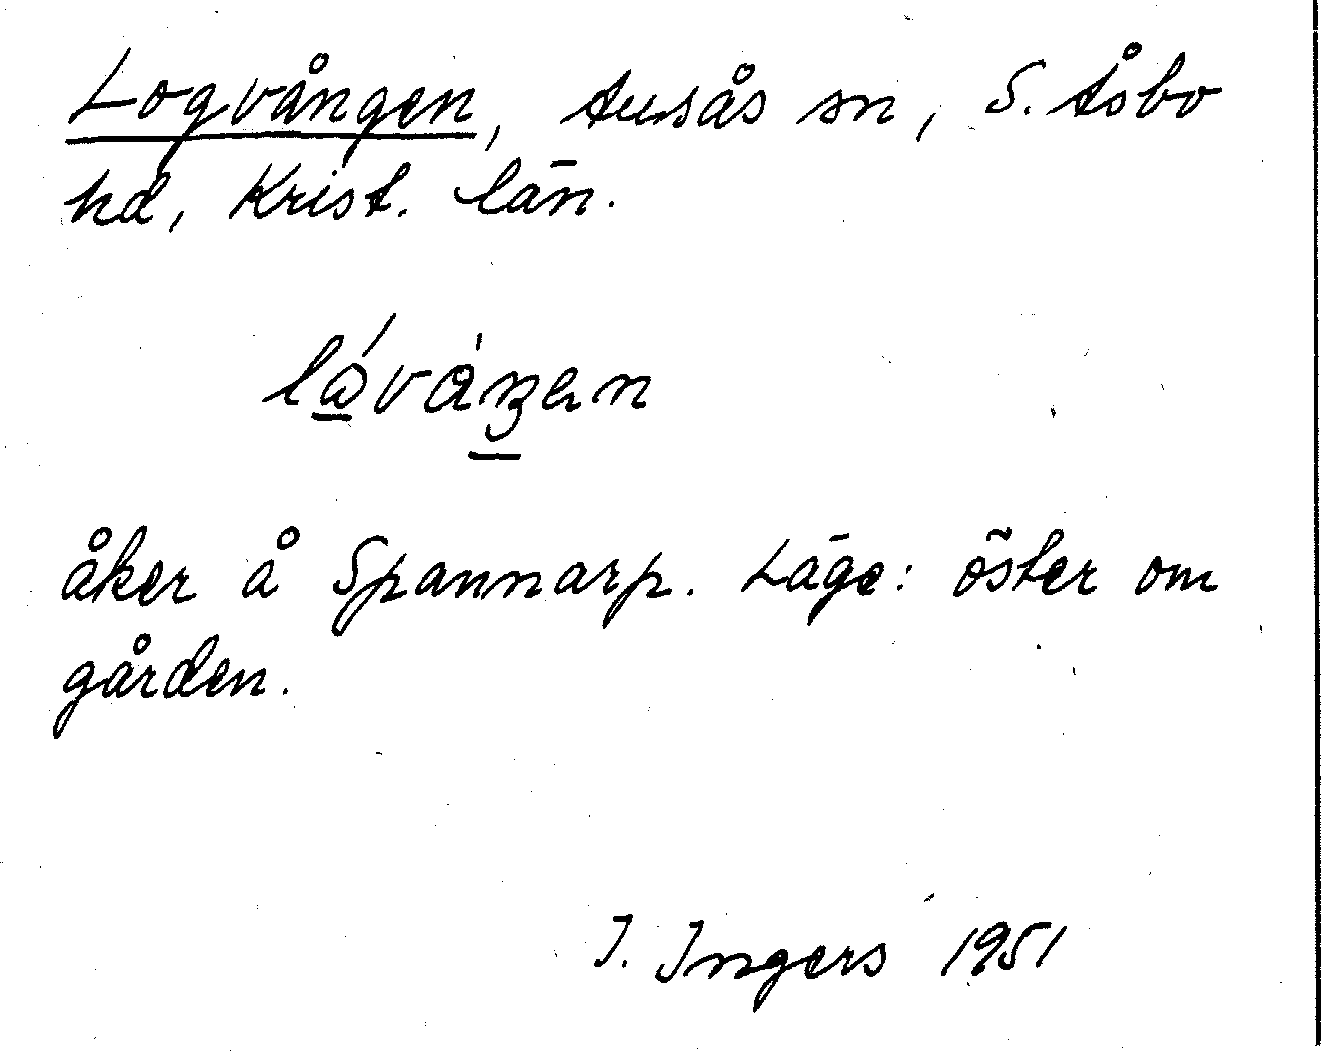 Logvången, Ausås sn, S. Åsbo
hd, Krist. län.
åker å Spannarp. Läge: öster om
gården.
I. Ingers 1951